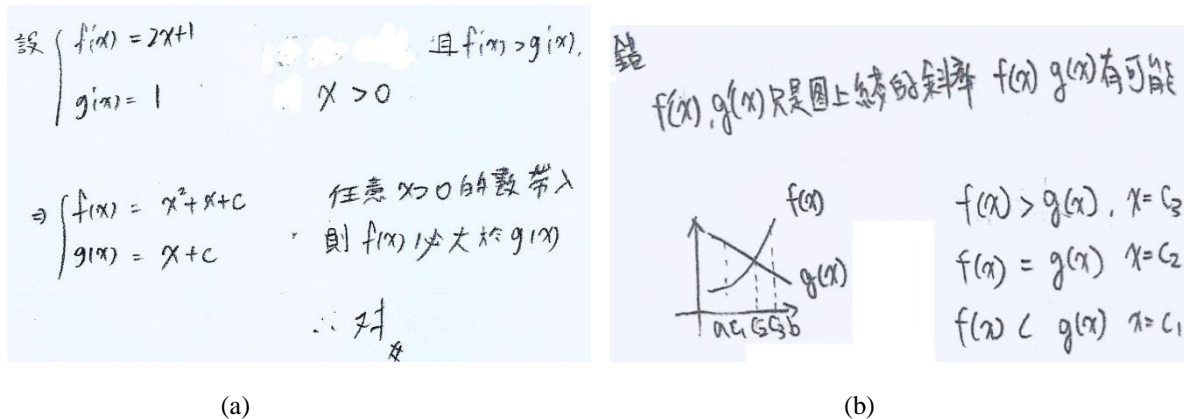 設 { f'(x) = 2x+1 且 f'(x) > g'(x),
g'(x) = 1 x > 0
⇒ { f(x) = x²+x+c 任意 x>0 的數帶入
g(x) = x+c 則 f(x) 必大於 g(x)
∴ 对
(a)
錯
f'(x), g'(x) 只是圖上線的斜率 f(x) g(x) 有可能
f(x)
g(x)
a c₁ c₂ c₃ b
f(x) > g(x), x = c₃
f(x) = g(x) x = c₂
f(x) < g(x) x = c₁
(b)